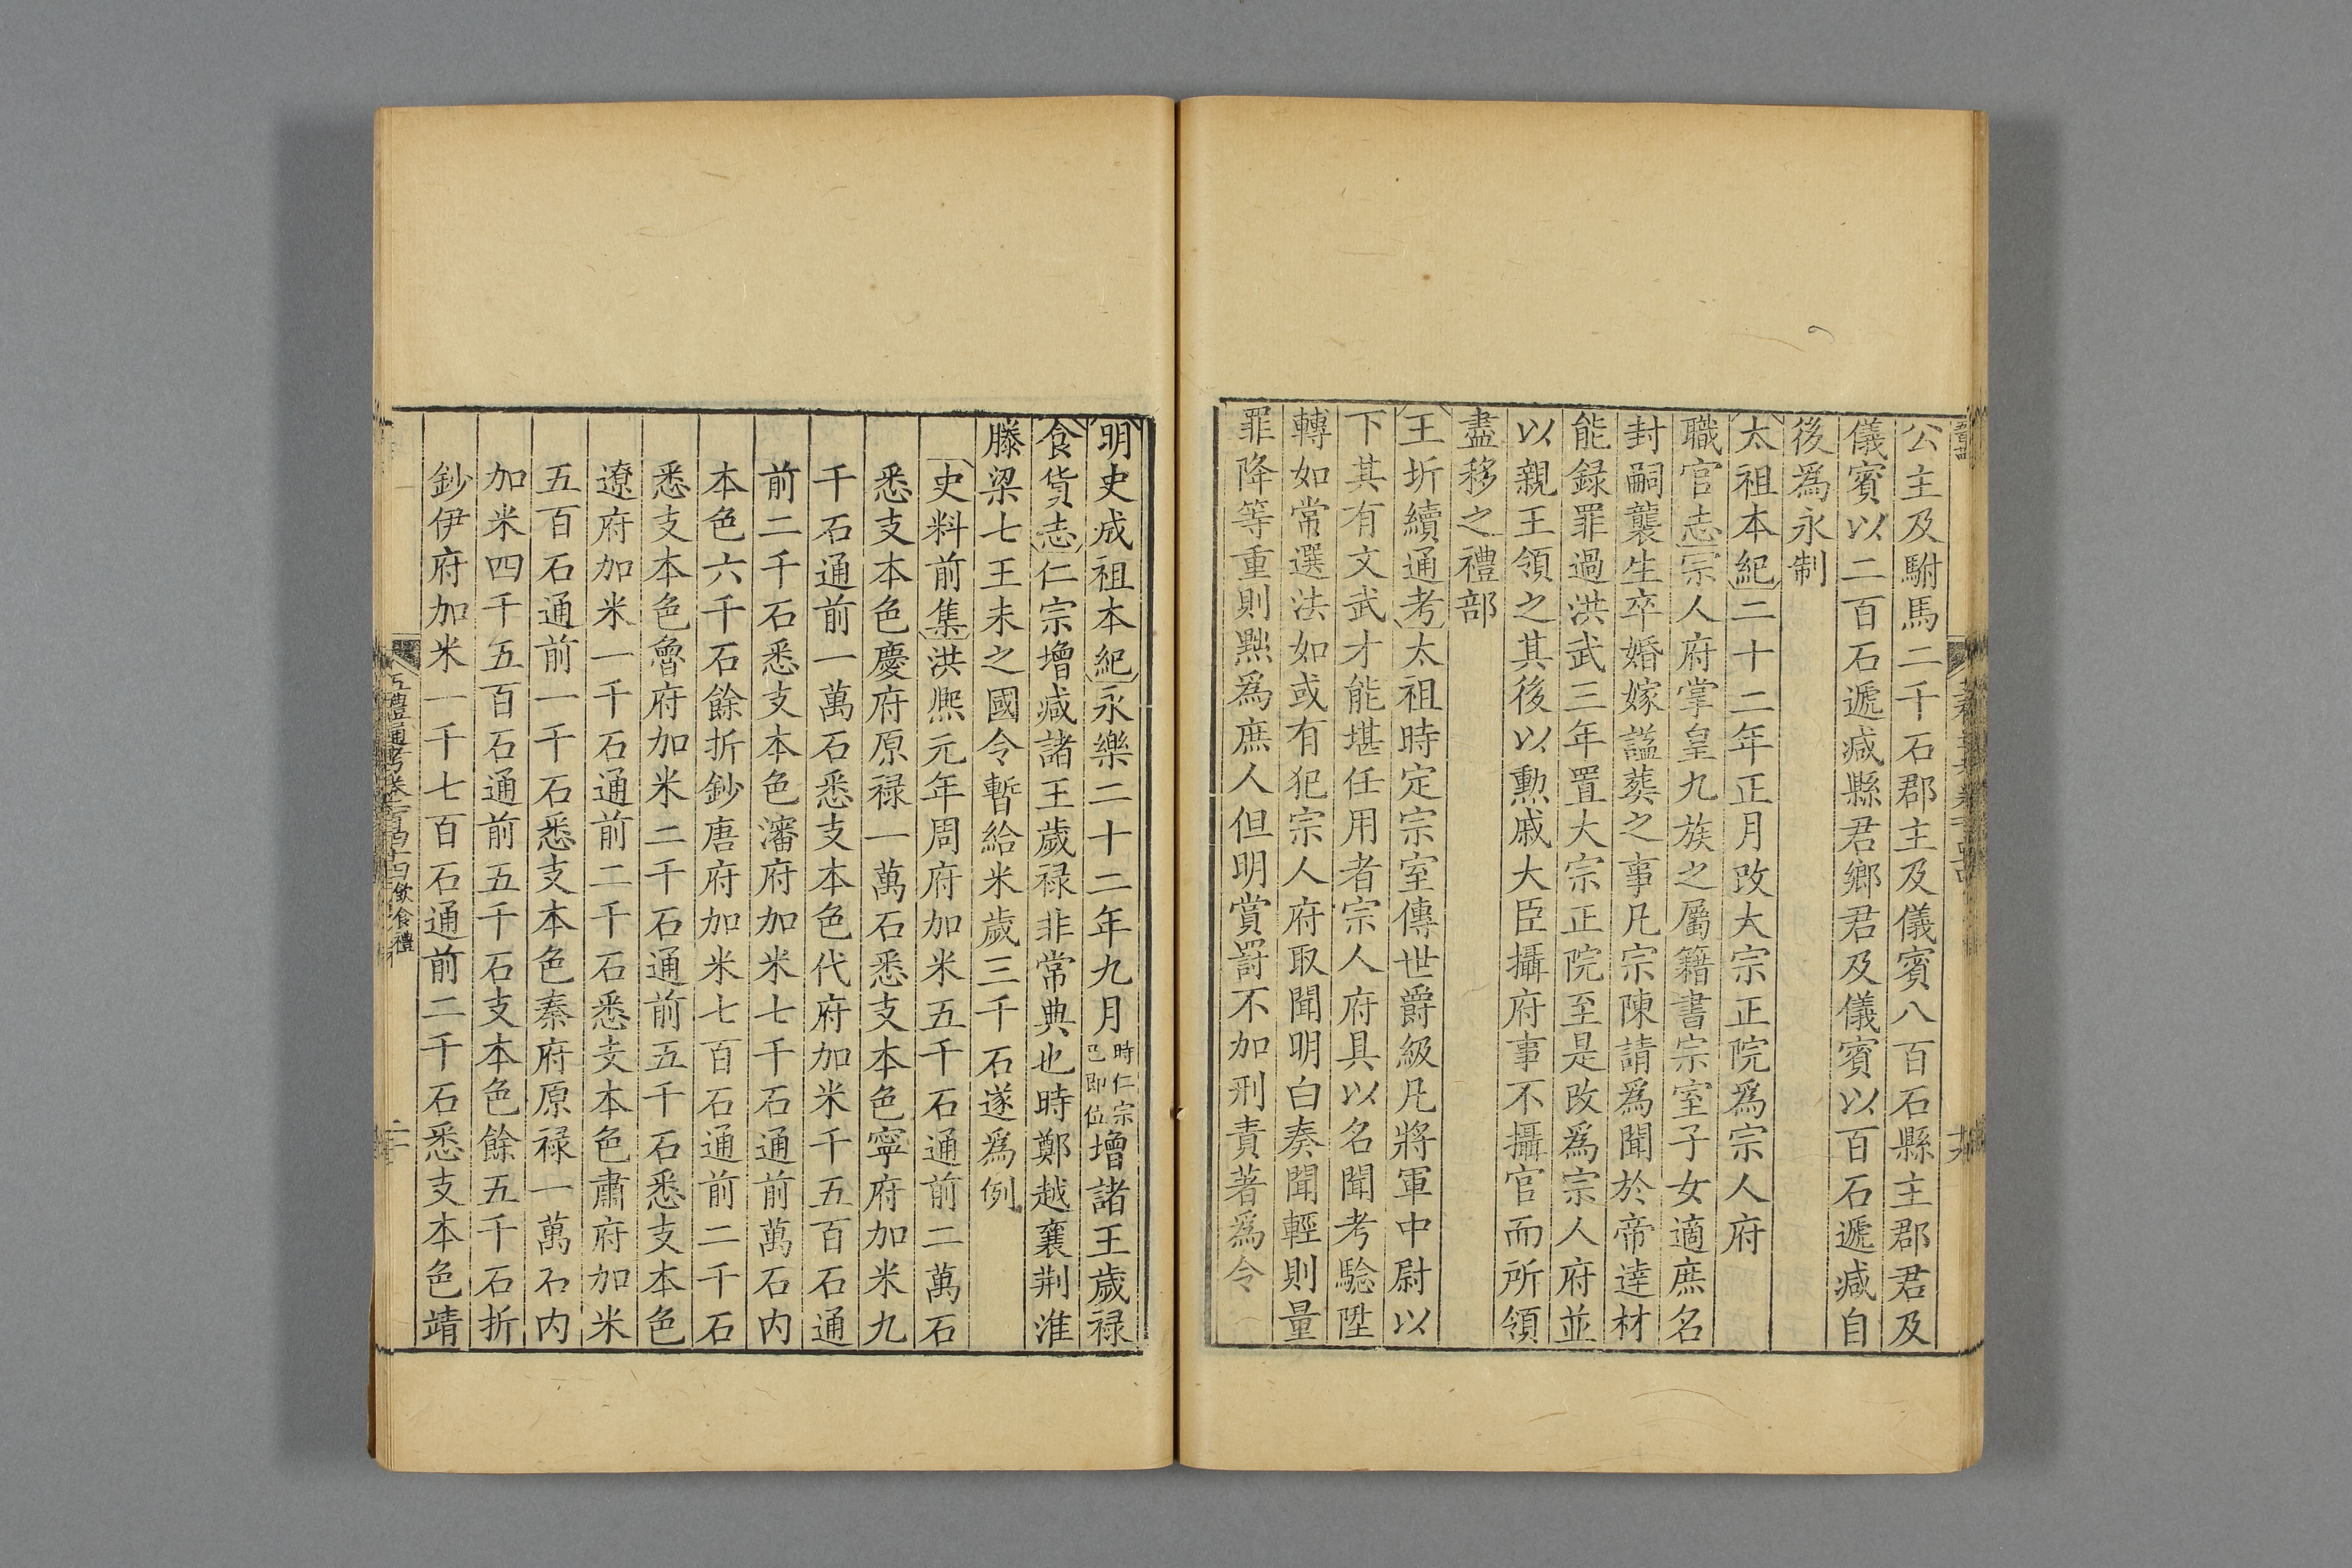 公主及駙馬二千石郡主及儀賓八百石縣主郡君及
儀賓以二百石遞減縣君鄉君及儀賓以百石遞減自
後爲永制
太祖本紀二十二年正月改大宗正院爲宗人府
職官志宗人府掌皇九族之屬籍書宗室子女適庶名
封嗣襲生卒婚嫁謚葬之事凡宗陳請爲聞於帝達材
能錄罪過洪武三年置大宗正院至是改爲宗人府並
以親王領之其後以勲戚大臣攝府事不攝官而所領
盡移之禮部
王圻續通考太祖時定宗室傳世爵級凡將軍中尉以
下其有文武才能堪任用者宗人府具以名聞考驗陞
轉如常選法如或有犯宗人府取聞明白奏聞輕則量
罪降等重則黜爲庶人但明賞罰不加刑責著爲令
明史成祖本紀永樂二十二年九月時仁宗已即位增諸王歲祿
食貨志仁宗增減諸王歲祿非常典也時鄭越襄荆淮
滕梁七王未之國令暫給米歲三千石遂爲例
史料前集洪熙元年周府加米五千石通前二萬石
悉支本色慶府原祿一萬石悉支本色寧府加米九
千石通前一萬石悉支本色代府加米千五百石通
前二千石悉支本色瀋府加米七千石通前萬石内
本色六千石餘折鈔唐府加米七百石通前二千石
悉支本色魯府加米二千石通前五千石悉支本色
遼府加米一千石通前二千石悉支本色肅府加米
五百石通前一千石悉支本色秦府原祿一萬石内
加米四千五百石通前五千石支本色餘五千石折
鈔伊府加米一千七百石通前二千石悉支本色靖
五禮通考卷一百四十四飲食禮